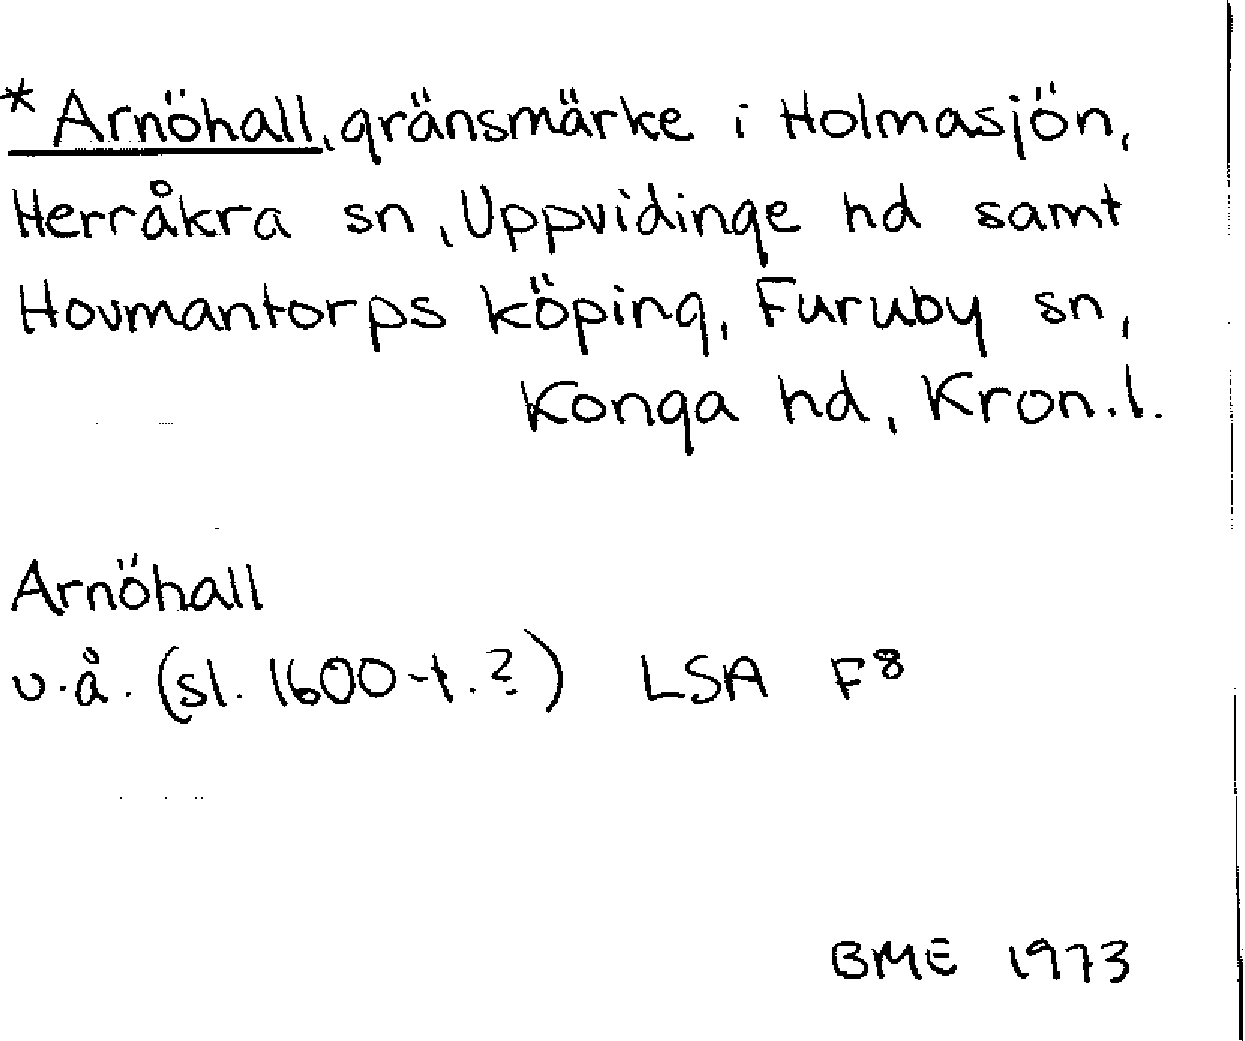 * Arnöhall, gränsmärke i Holmasjön,
Herråkra sn, Uppvidinge hd samt
Hovmantorps köping, Furuby sn,
Konga hd, Kron.l.
Arnöhall
u.å. (sl. 1600-t.?) LSA F8
BME 1973